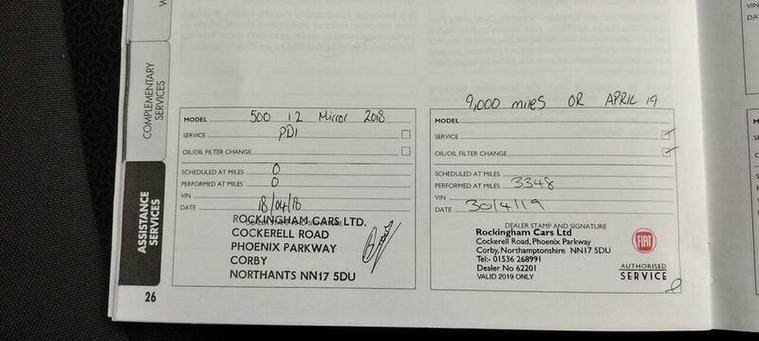 COMPLEMENTARY
SERVICES
ASSISTANCE
SERVICES
MODEL 500 1.2 Mirror 2018
SERVICE PDI
OIL/OIL FILTER CHANGE
SCHEDULED AT MILES 0
PERFORMED AT MILES 0
VIN
DATE 18/04/18
ROCKINGHAM CARS LTD.
COCKERELL ROAD
PHOENIX PARKWAY
CORBY
NORTHANTS NN17 5DU
26
9,000 miles OR APRIL 19
MODEL
SERVICE
OIL/OIL FILTER CHANGE
SCHEDULED AT MILES
PERFORMED AT MILES 3348
VIN
DATE 30/4/19
DEALER STAMP AND SIGNATURE
Rockingham Cars Ltd
Cockerell Road, Phoenix Parkway
Corby, Northamptonshire NN17 5DU
Tel:- 01536 268991
Dealer No 62201
VALID 2019 ONLY
FIAT
AUTHORISED
SERVICE
VIN